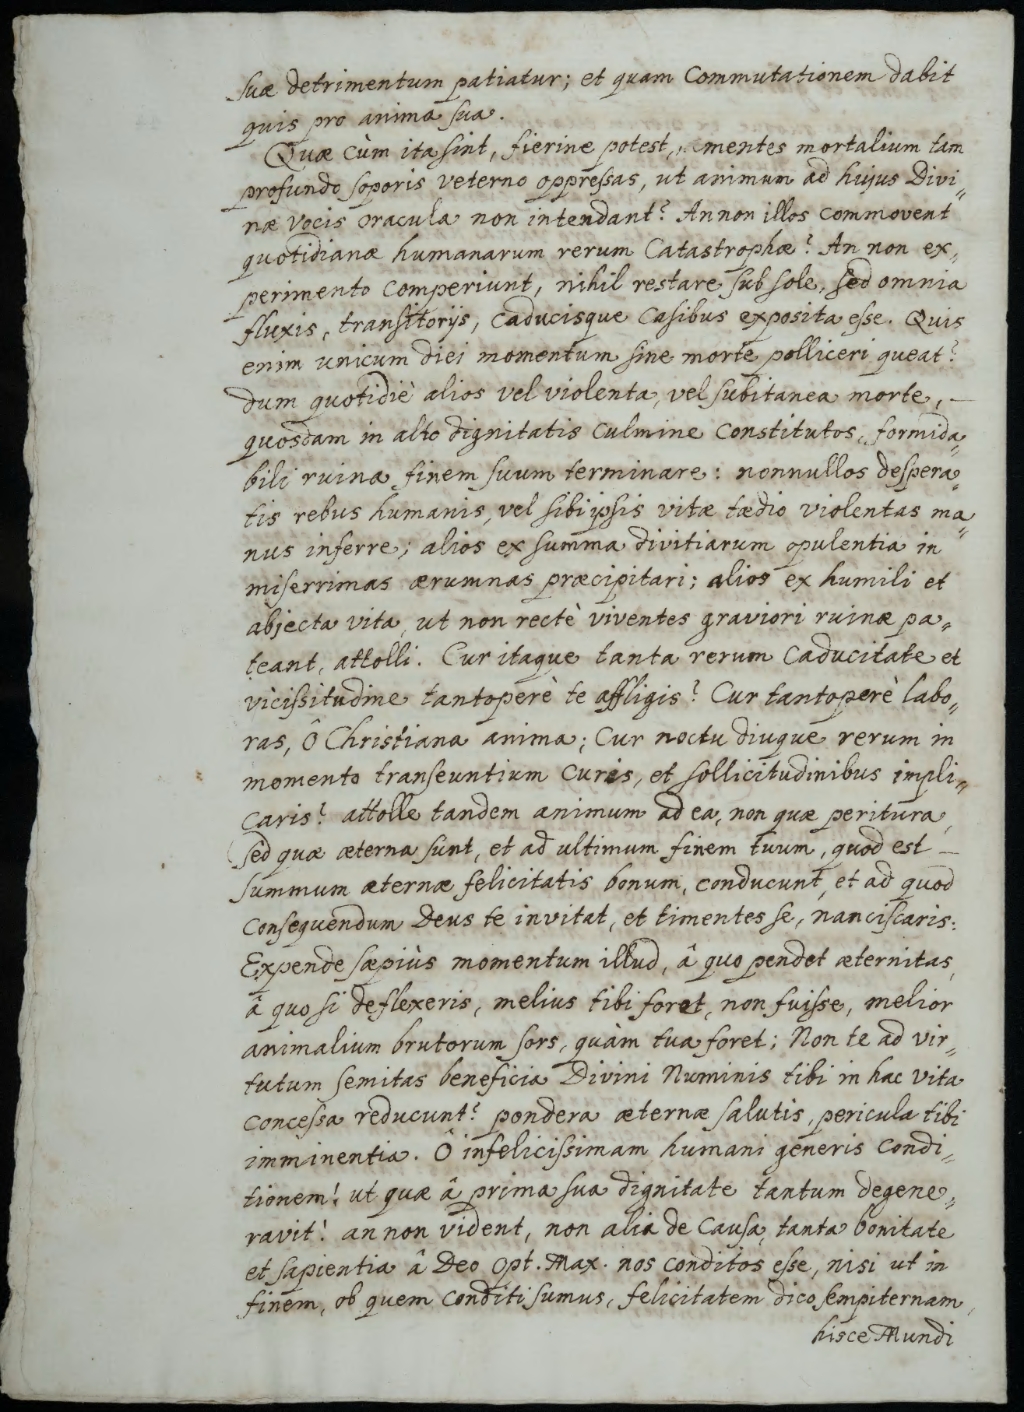 suæ detrimentum patiatur; et quam Commutationem dabit
quis pro anima sua.
Quæ cùm ita sint, fierine potest, mentes mortalium tam
profundo soporis veterno oppressas, ut animum ad hujus Divi„
næ vocis oracula non intendant? An non illos commovent
quotidianæ humanarum rerum Catastrophæ? An non ex„
perimento comperiunt, nihil restare sub sole, sed omnia
fluxis, transitorijs, caducisque casibus exposita esse. Quis
enim unicum diei momentum sine morte polliceri queat?
dum quotidiè alios vel violenta, vel subitanea morte, —
quosdam in alto dignitatis culmine constitutos, formida„
bili ruina finem suum terminare: nonnullos despera„
tis rebus humanis, vel sibi ipsis vitæ tædio violentas ma„
nus inferre; alios ex summa divitiarum opulentia in
miserrimas ærumnas præcipitari; alios ex humili et
abjecta vita, ut non rectè viventes graviori ruinæ pa„
teant, attolli. Cur itaque tanta rerum Caducitate et
vicissitudine tantoperè te affligis? Cur tantoperè labo„
ras, Ô Christiana anima; Cur noctu diuque rerum in
momento transeuntium curis, et sollicitudinibus impli„
caris? attolle tandem animum ad ea, non quæ peritura,
sed quæ æterna sunt, et ad ultimum finem tuum, quod est —
summum æternæ felicitatis bonum, conducunt, et ad quod
consequendum Deus te invitat, et timentes se, nanciscaris:
Expende sæpiùs momentum illud, â quo pendet æternitas,
â quo si deflexeris, melius tibi foret, non fuisse, melior
animalium brutorum sors, quàm tua foret; Non te ad vir„
tutum semitas beneficia Divini Numinis tibi in hac vita
concessa reducunt? pondera æternæ salutis, pericula tibi
imminentia. Ô infelicissimam humani generis condi„
tionem! ut quæ â prima sua dignitate tantum degene„
ravit! an non vident, non alia de causa, tanta bonitate
et sapientia â Deo Opt. Max. nos conditos esse, nisi ut in
finem, ob quem conditi sumus, felicitatem dico sempiternam,
hisce Mundi